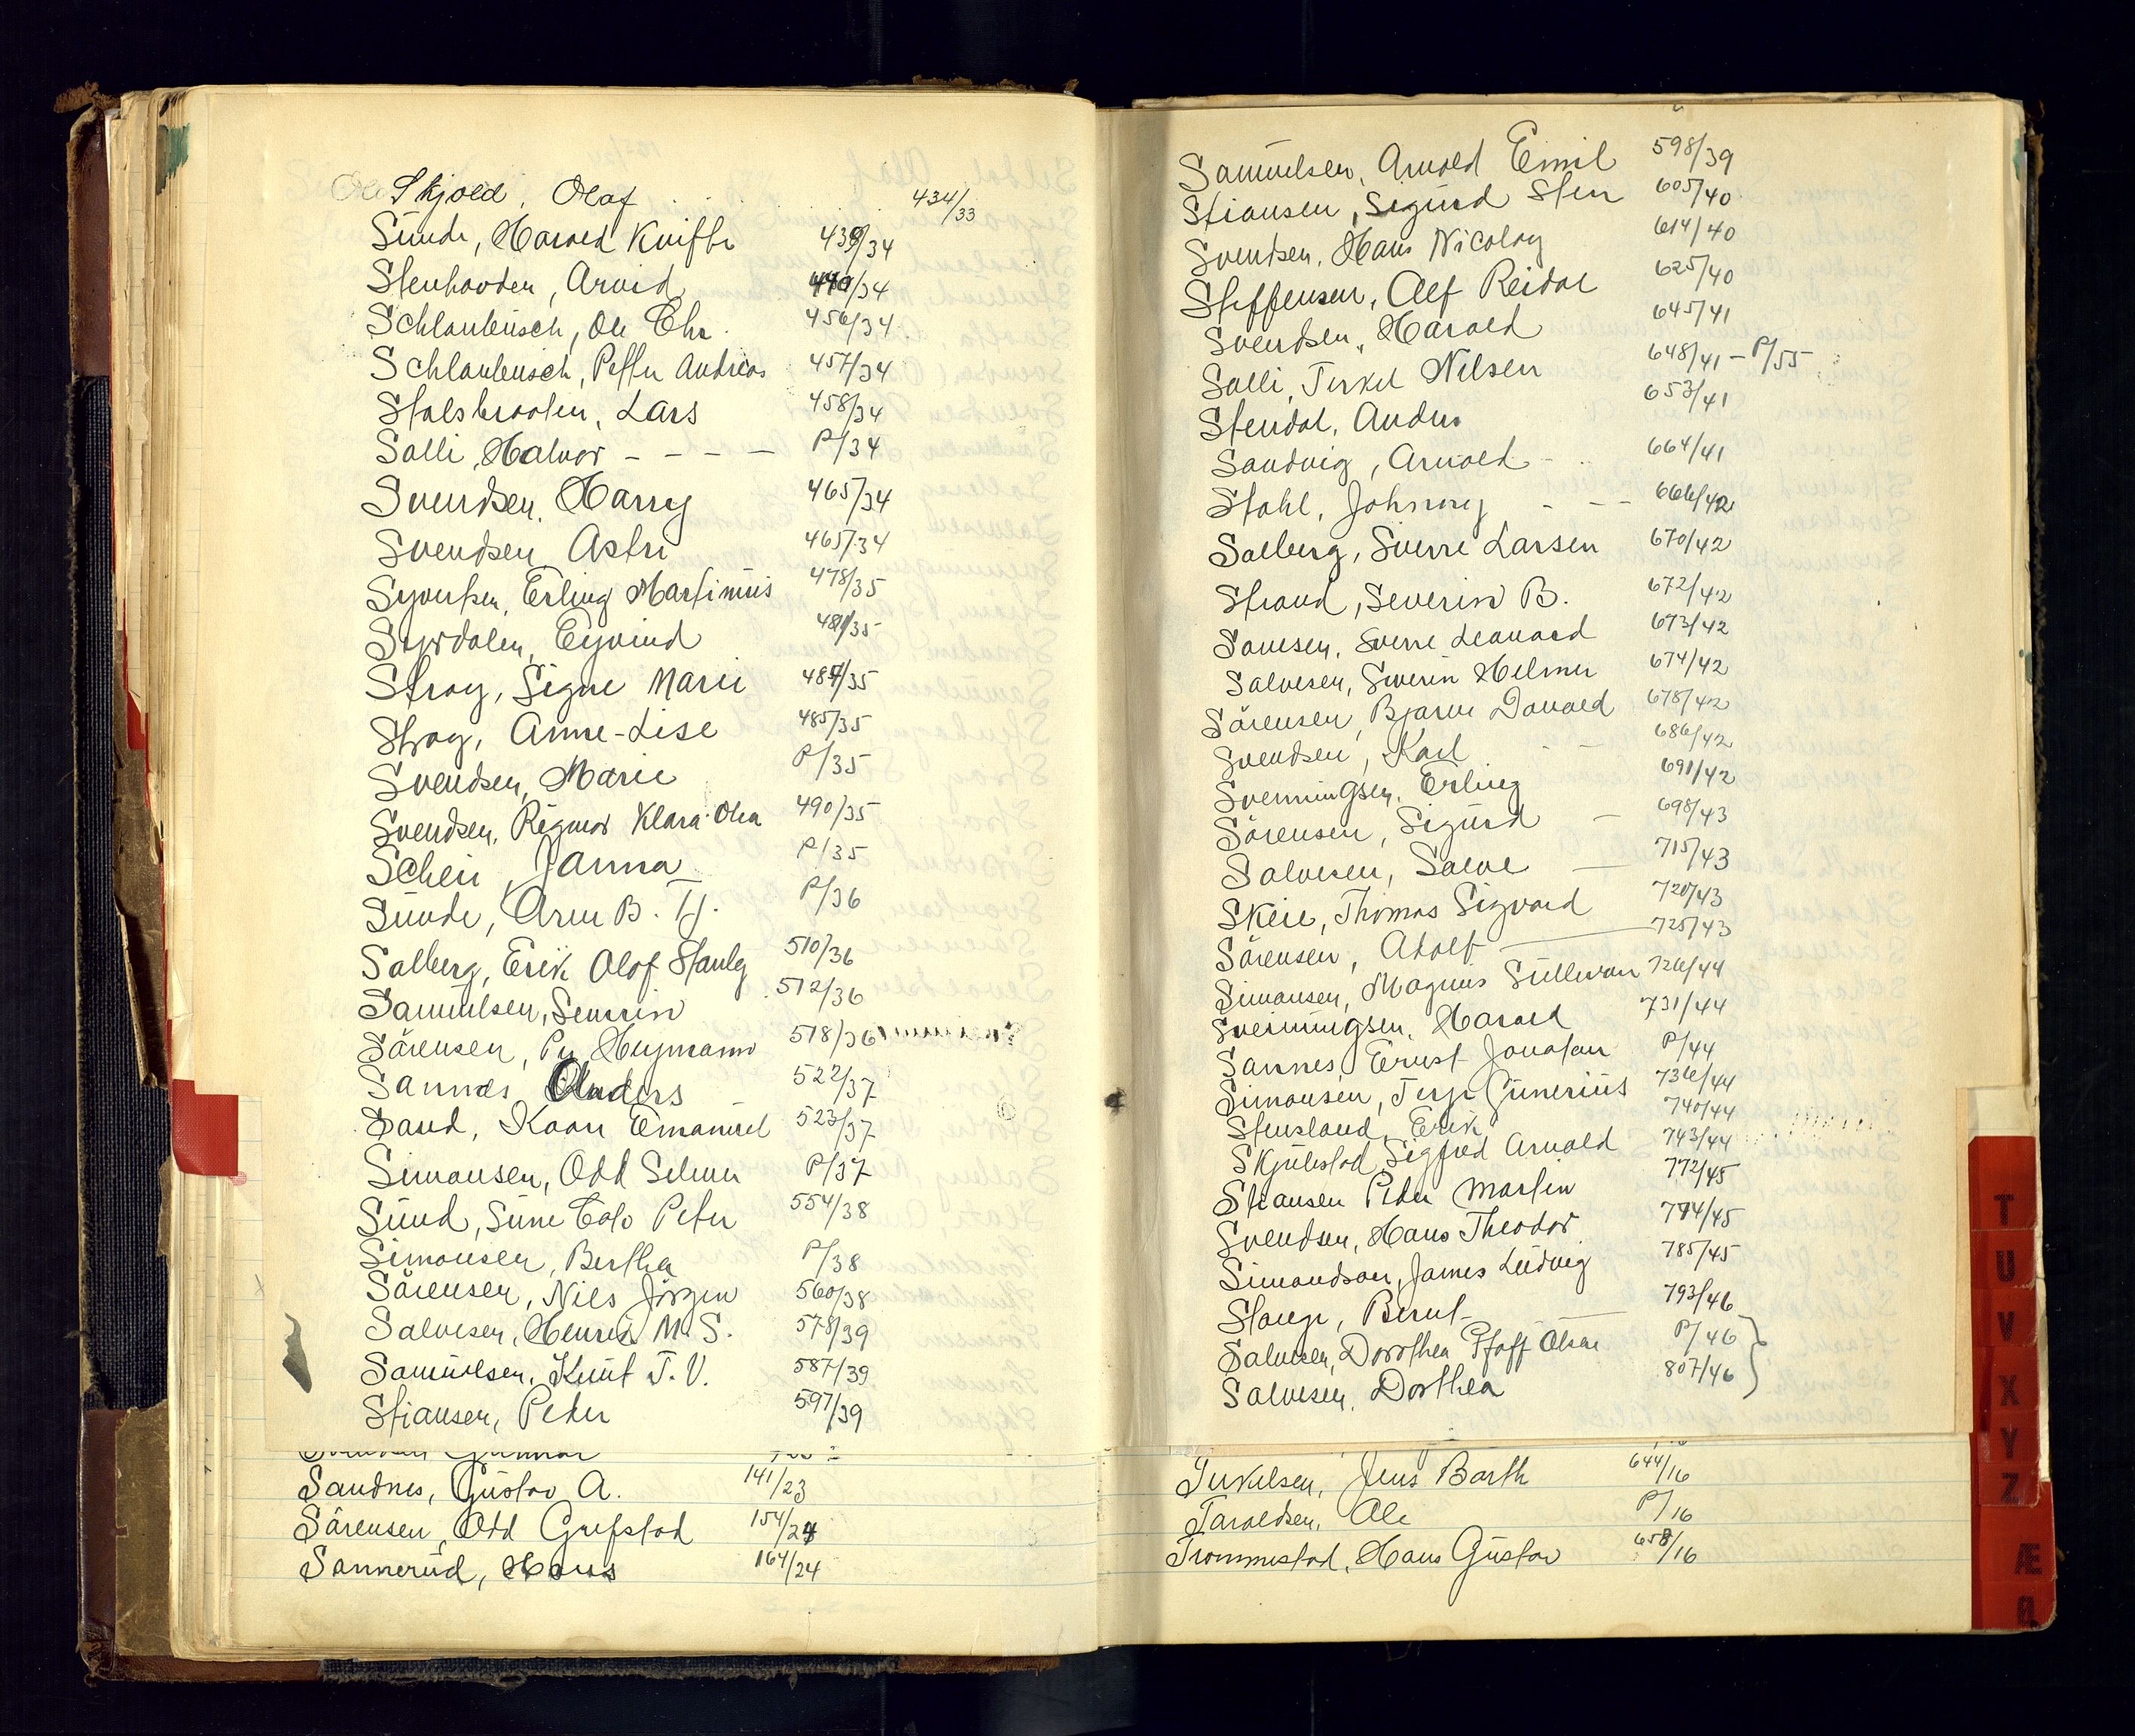 Skjold, Olaf 434/33
Sunde, Harald Kniffe 439/34
Stenhovden, Arvid 440/34
Schlanbusch, Ole Chr. 456/34
Schlanbusch, Petter Andreas 457/34
Stalsbraaten, Lars 458/34
Solli, Halvor - - - - P/34
Svendsen, Harry 465/34
Svendsen, Astri 465/34
Syvertsen, Erling Martinius 478/35
Syrdalen, Eyvind 481/35
Stray, Signe Marie 484/35
Stray, Anne-Lise 485/35
Svendsen, Marie P/35
Svendsen, Rigmor Klara Olea 490/35
Schei, Janna P/35
Sunde, Arne B. Tj. P/36
Salberg, Erik Olof Stanley 510/36
Samuelsen, Severin 512/36
Sörensen, Per Heymann 518/36
Sannæs Anders 522/37
Sand, Kaare Emanuel 523/37
Simonsen, Odd Selmer P/37
Sund, Sune Carlo Peter 554/38
Simonsen, Bertha P/38
Sörensen, Niels Jörgen 560/38
Salvesen, Henrik M. S. 578/39
Samuelsen, Knut T. V. 587/39
Stiansen, Peder 597/39
Sandnes, Gustav A. 141/23
Sörensen, Odd Grefstad 154/24
Sannerud, Hans 164/24
Samuelsen, Arnold Emil 598/39
Stiansen, Sigurd Sten 605/40
Svendsen, Hans Nicolay 614/40
Steffensen, Alf Reidar 625/40
Svendsen, Harald 645/41
Solli, Terkel Nilsen 648/41 - P/55
Stendal, Anders 653/41
Sandvig, Arnold 664/41
Stahl, Johnny - - - 666/42
Solberg, Sverre Larsen 670/42
Strand, Severin B. 672/42
Sanesen, Sverre Leonard 673/42
Salvesen, Severin Helmer 674/42
Sörensen, Bjarne Donald 678/42
Svendsen, Karl - - 686/42
Svenningsen, Erling 691/42
Sörensen, Sigurd - 698/43
Salvesen, Salve — 715/43
Skeie, Thomas Sigvard 720/43
Sörensen, Adolf — 725/43
Simonsen, Magnus Sullivan 726/44
Svenningsen, Harald 731/44
Sannes, Ernst Jonatan P/44
Simonsen, Terje Gunerius 736/44
Stensland, Erik 740/44
Skjulestad, Sigfred Arnold 743/44
Stiansen Peder Martin 772/45
Svendsen, Hans Theodor 774/45
Simondson, James Ludvig 785/45
Stange, Bernt — 793/46
Salvesen, Dorothea Pfaff Olsen P/46
Salvesen, Dorthea 807/46
Terkelsen, Jens Barth 644/16
Taraldsen, Ole P/16
Trommestad, Hans Gustav 658/16
T
U
V
X
Y
Z
Æ
Ø